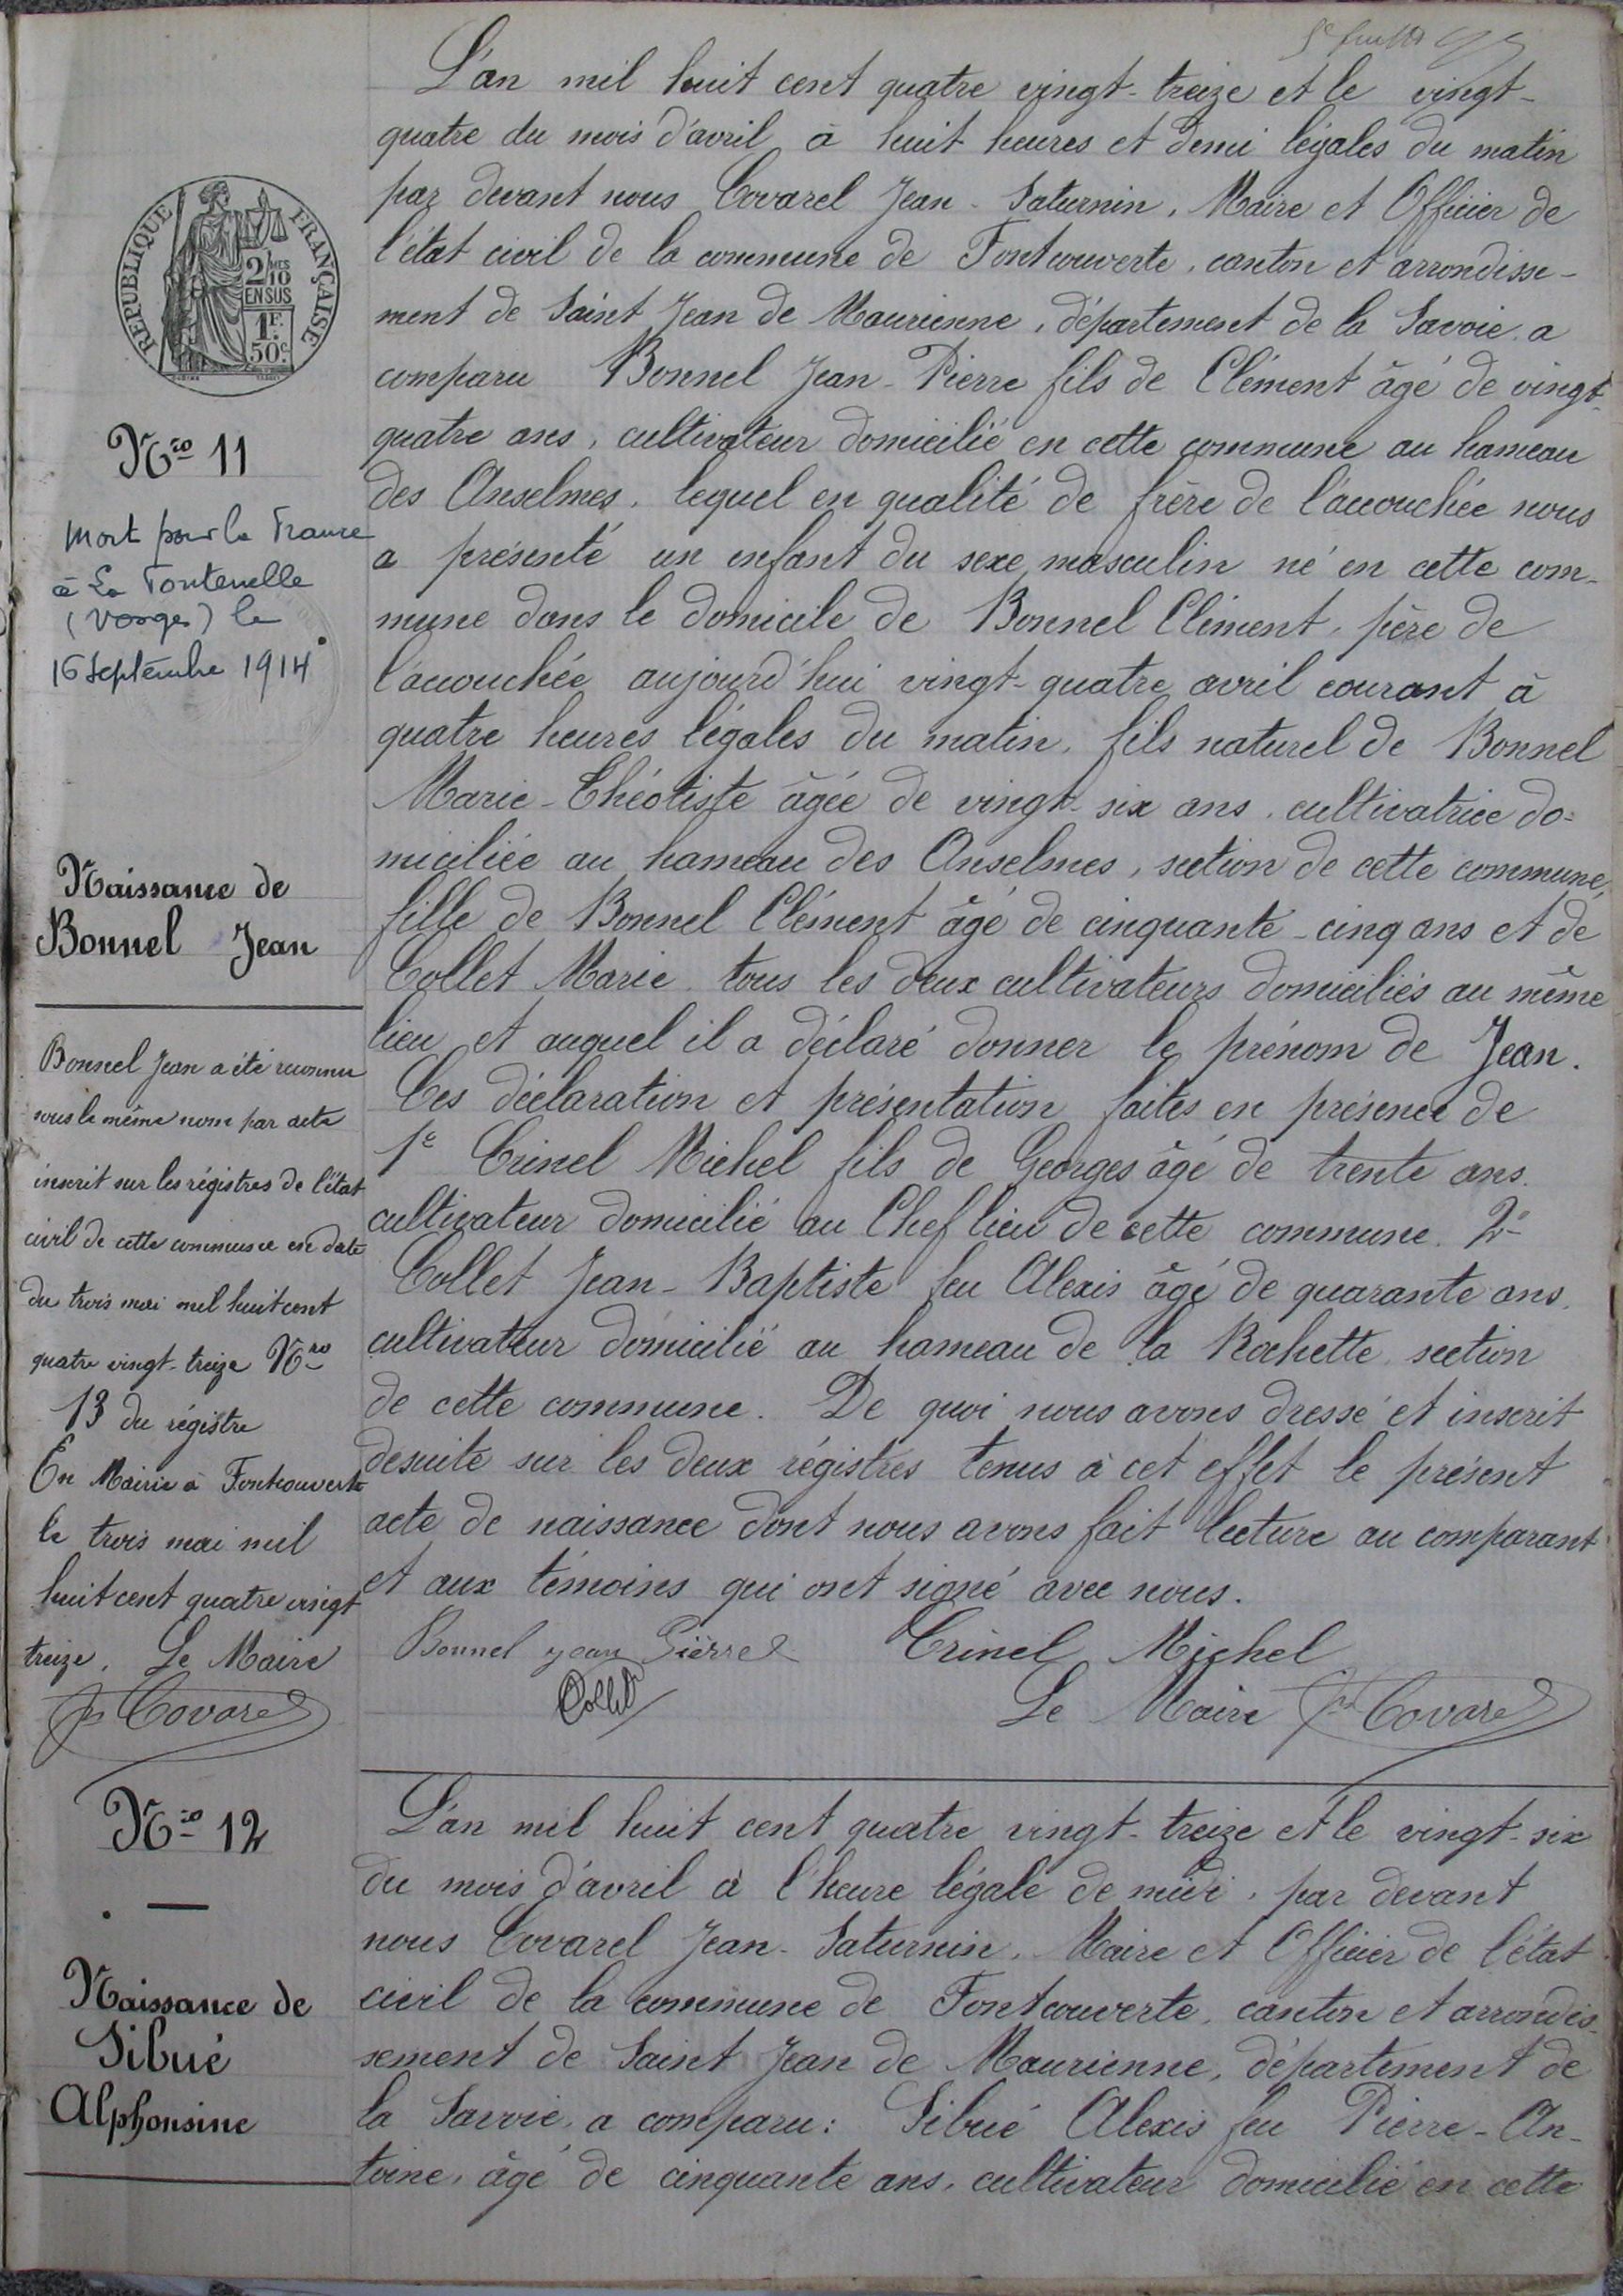 5e feuillet
L'an mil huit cent quatre vingt-treize et le vingt-
quatre du mois d'avril à huit heures et demi légales du matin
par devant nous Covarel Jean-Saturnin, Maire et Officier de
l'état civil de la commune de Fontcouverte, canton et arrondisse-
ment de Saint Jean de Maurienne, département de la Savoie, a
comparu Bonnel Jean-Pierre fils de Clément âgé de vingt-
quatre ans, cultivateur domicilié en cette commune au hameau
des Anselmes, lequel en qualité de frère de l'accouchée nous
a présenté un enfant du sexe masculin né en cette com-
mune dans le domicile de Bonnel Clément, père de
l'accouchée aujourd'hui vingt-quatre avril courant à
quatre heures légales du matin, fils naturel de Bonnel
Marie-Théotiste âgée de vingt-six ans, cultivatrice do-
miciliée au hameau des Anselmes, section de cette commune,
fille de Bonnel Clément âgé de cinquante-cinq ans et de
Collet Marie tous les deux cultivateurs domiciliés au même
lieu et auquel il a déclaré donner le prénom de Jean.
Ces déclaration et présentation faites en présence de
1e Crinel Michel fils de Georges âgé de trente ans,
cultivateur domicilié au Chef lieu de cette commune. 2e
Collet Jean-Baptiste feu Alexis âgé de quarante ans,
cultivateur domicilié au hameau de la Rochette, section
de cette commune. De quoi nous avons dressé et inscrit
desuite sur les deux régistres tenus à cet effet le présent
acte de naissance dont nous avons fait lecture au comparant
et aux témoins qui ont signé avec nous.
Bonnel Jean Pierre Crinel Michel
Collet Le Maire Jn Covarel
REPUBLIQUE FRANÇAISE
2/10MES
EN SUS
1F.
50c.
Nro 11
Mort pour la France
à La Fontenelle
(Vosges) le
16 Septembre 1914
Naissance de
Bonnel Jean
Bonnel Jean a été reconnu
sous le même nom par acte
inscrit sur les régistres de l'état
civil de cette commune en date
du trois mai mil huit cent
quatre vingt-treize Nro
13 du régistre
En Mairie à Fontcouverte
le trois mai mil
huit cent quatre vingt
treize. Le Maire
Jn Covarel
Nro 12
Naissance de
Sibué
Alphonsine
L'an mil huit cent quatre vingt-treize et le vingt-six
du mois d'avril à l'heure légale de midi, par devant
nous Covarel Jean-Saturnin, Maire et Officier de l'état
civil de la commune de Fontcouverte, canton et arrondis-
sement de Saint Jean de Maurienne, département de
la Savoie, a comparu: Sibué Alexis feu Pierre-An-
toine, âgé de cinquante ans, cultivateur domicilié en cette